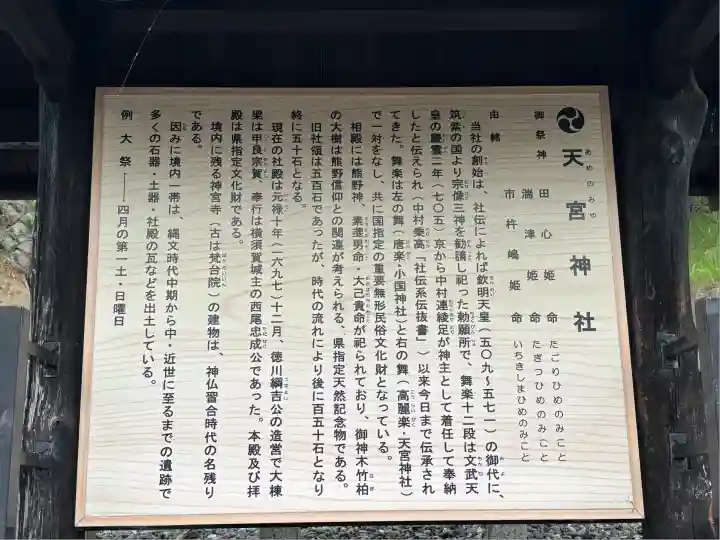 天宮神社
あめのみや
御祭神
田心姫命 たごりひめのみこと
湍津姫命 たぎつひめのみこと
市杵嶋姫命 いちきしまひめのみこと
由緒
当社の創始は、社伝によれば欽明天皇(五〇九〜五七一)の御代に、
筑紫の国より宗像三神を勧請し祀った勅願所で、舞楽十二段は文武天
皇の慶雲二年(七〇五)京から中村連綾足が神主として着任して奉納
したと伝えられ(中村乗高『社伝系伝抜書』)以来今日まで伝承され
てきた。舞楽は左の舞(唐楽・小国神社)と右の舞(高麗楽・天宮神社)
で一対をなし、共に国指定の重要無形民俗文化財となっている。
相殿には熊野神、素戔男命・大己貴命が祀られており、御神木竹柏
の大樹は熊野信仰との関連が考えられる、県指定天然記念物である。
旧社領は五百石であったが、時代の流れにより後に百五十石となり
終に五十石となる。
現在の社殿は元禄十年(一六九七)十二月、徳川綱吉公の造営で大棟
梁は甲良宗賀、奉行は横須賀城主の西尾忠成公であった。本殿及び拝
殿は県指定文化財である。
境内に残る神宮寺(古は梵台院)の建物は、神仏習合時代の名残り
である。
因みに境内一帯は、縄文時代中期から中・近世に至るまでの遺跡で
多くの石器・土器・社殿の瓦などを出土している。
例大祭――四月の第一土・日曜日